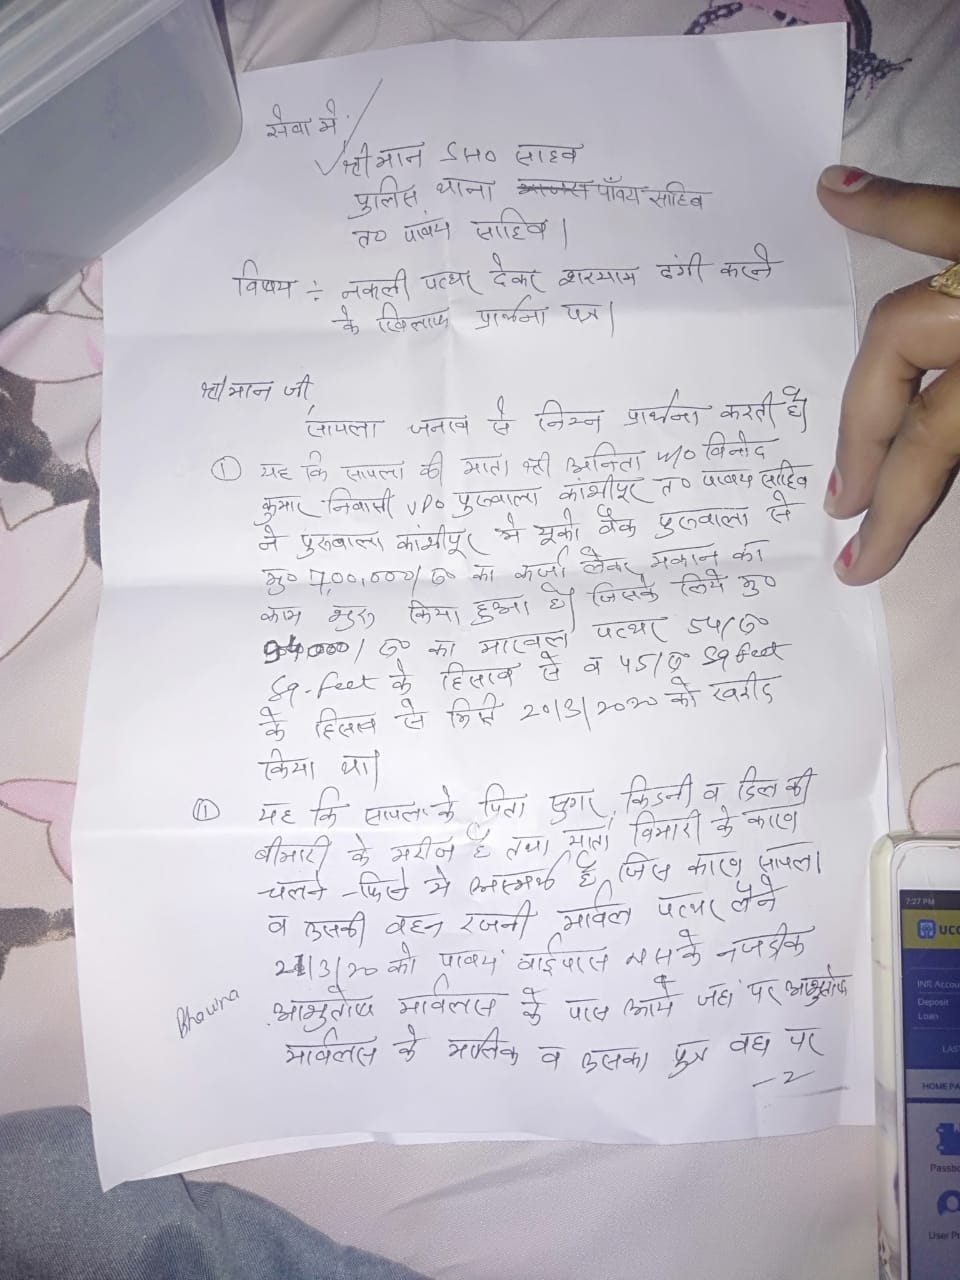 सेवा मे,
श्रीमान SHO साहब
पुलिस थाना पाँवटा साहिब
त० पांवटा साहिब।
विषय :- नकली पत्थर देकर सरेयाम ठगी करने
के खिलाफ प्रार्थना पत्र।
श्रीमान जी
सायला जनाब से निम्न प्रार्थना करती है।
① यह कि सायला की माता श्री अनिता w/o विनोद
कुमार निवासी VPO पुरुवाला कांशीपुर त० पांवटा साहिब
ने पुरुवाला कांशीपुर मे यूको बैंक पुरुवाला से
मु० 7,00,000/रु० का कर्जा लेकर मकान का
काम शुरु किया हुआ है। जिसके लिये मु०
94000/रु० का मारबल पत्थर 54/रु०
Sq-feet के हिसाब से व 45/रु Sq feet
के हिसाब से 20/3/2020 को खरीद
किया था।
① यह कि सायला के पिता सुगर, किडनी व दिल की
बीमारी के मरीज है तथा माता बिमारी के कारण
चलने-फिरने मे असमर्थ है, जिस कारण सायला
व उसकी बहन रजनी मार्बल पत्थर लेने
21/3/20 को पांवटा बाईपास के नजदीक
आशुतोष मार्बलस के पास आये जहां पर आशुतोष
मार्बलस के मालिक व उसका पुत्र वहां पर
-2
Bhawna
7:27 PM
UCO
INR Accou
Deposit
Loan
LAS
HOME PA
Passbo
User P